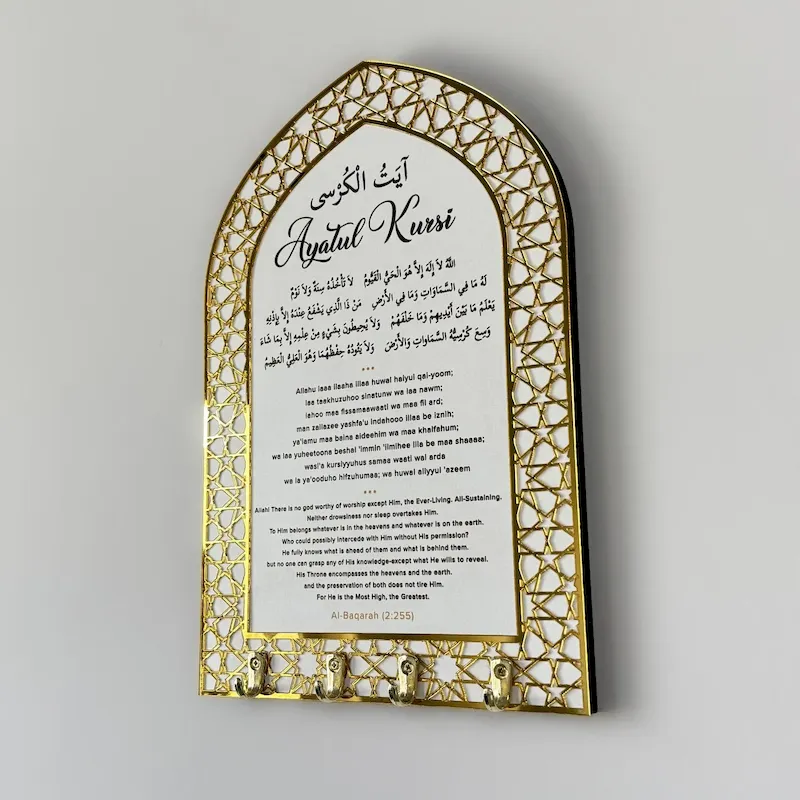 آيَتُ الْكُرْسى
Ayatul Kursi
اللَّهُ لاَ إِلَهَ إِلاَّ هُوَ الْحَيُّ الْقَيُّومُ لاَ تَأْخُذُهُ سِنَةٌ وَلاَ نَوْمٌ
لَهُ مَا فِي السَّمَاوَاتِ وَمَا فِي الأَرْضِ مَنْ ذَا الَّذِي يَشْفَعُ عِنْدَهُ إِلاَّ بِإِذْنِهِ
يَعْلَمُ مَا بَيْنَ أَيْدِيهِمْ وَمَا خَلْفَهُمْ وَلاَ يُحِيطُونَ بِشَيْءٍ مِنْ عِلْمِهِ إِلاَّ بِمَا شَاءَ
وَسِعَ كُرْسِيُّهُ السَّمَاوَاتِ وَالأَرْضَ وَلاَ يَئُودُهُ حِفْظُهُمَا وَهُوَ الْعَلِيُّ الْعَظِيمُ
Allahu laaa ilaaha illaa huwal haiyul qai-yoom;
laa taakhuzuhoo sinatunw wa laa nawm;
lahoo maa fissamaawaati wa maa fil ard;
man zallazee yashfa'u indahooo illaa be iznih;
ya'lamu maa baina aideehim wa maa khalfahum;
wa laa yuheetoona beshai 'immin 'ilmihee illa be maa shaaaa;
wasi'a kursiyyuhus samaa waati wal arda
wa la ya'ooduho hifzuhumaa; wa huwal aliyyul 'azeem
Allah! There is no god worthy of worship except Him, the Ever-Living. All-Sustaining.
Neither drowsiness nor sleep overtakes Him.
To Him belongs whatever is in the heavens and whatever is on the earth.
Who could possibly intercede with Him without His permission?
He fully knows what is ahead of them and what is behind them.
but no one can grasp any of His knowledge-except what He wills to reveal.
His Throne encompasses the heavens and the earth.
and the preservation of both does not tire Him.
For He is the Most High, the Greatest.
Al-Baqarah (2:255)